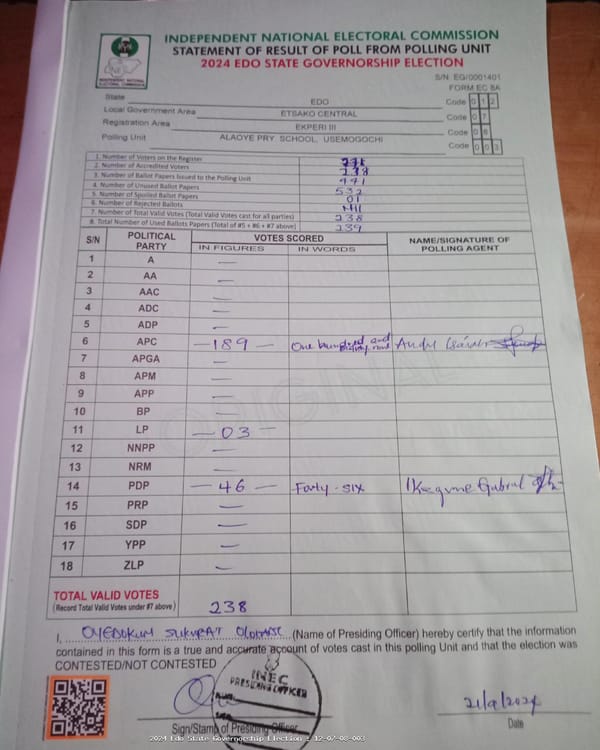 INDEPENDENT NATIONAL ELECTORAL COMMISSION
STATEMENT OF RESULT OF POLL FROM POLLING UNIT
2024 EDO STATE GOVERNORSHIP ELECTION
S/N: EG/0001401
FORM EC 8A
INDEPENDENT NATIONAL ELECTORAL COMMISSION
State EDO Code 0 1 2
Local Government Area ETSAKO CENTRAL Code 0 7
Registration Area EKPERI III Code 0 8
Polling Unit ALAOYE PRY. SCHOOL, USEMOGOCHI Code 0 0 3
1. Number of Voters on the Register
2. Number of Accredited Voters 238
3. Number of Ballot Papers Issued to the Polling Unit
4. Number of Unused Ballot Papers 532
5. Number of Spoiled Ballot Papers 01
6. Number of Rejected Ballots Nill
7. Number of Total Valid Votes (Total Valid Votes cast for all parties) 238
8. Total Number of Used Ballots Papers (Total of #5 + #6 + #7 above) 239
S/N POLITICAL PARTY VOTES SCORED NAME/SIGNATURE OF POLLING AGENT
IN FIGURES IN WORDS
1 A —
2 AA —
3 AAC —
4 ADC —
5 ADP —
6 APC —189— One hundred and eighty nine Andy
7 APGA —
8 APM —
9 APP —
10 BP —
11 LP —03—
12 NNPP —
13 NRM —
14 PDP —46— Forty-six Gabriel
15 PRP —
16 SDP —
17 YPP —
18 ZLP —
ORIGINAL
TOTAL VALID VOTES
(Record Total Valid Votes under #7 above) 238
I, (Name of Presiding Officer) hereby certify that the information
contained in this form is a true and accurate account of votes cast in this polling Unit and that the election was
CONTESTED/NOT CONTESTED
INEC
PRESIDING OFFICER
21/9/2024
Sign/Stamp of Presiding Officer Date
2024 Edo State Governorship Election : 12-07-08-003